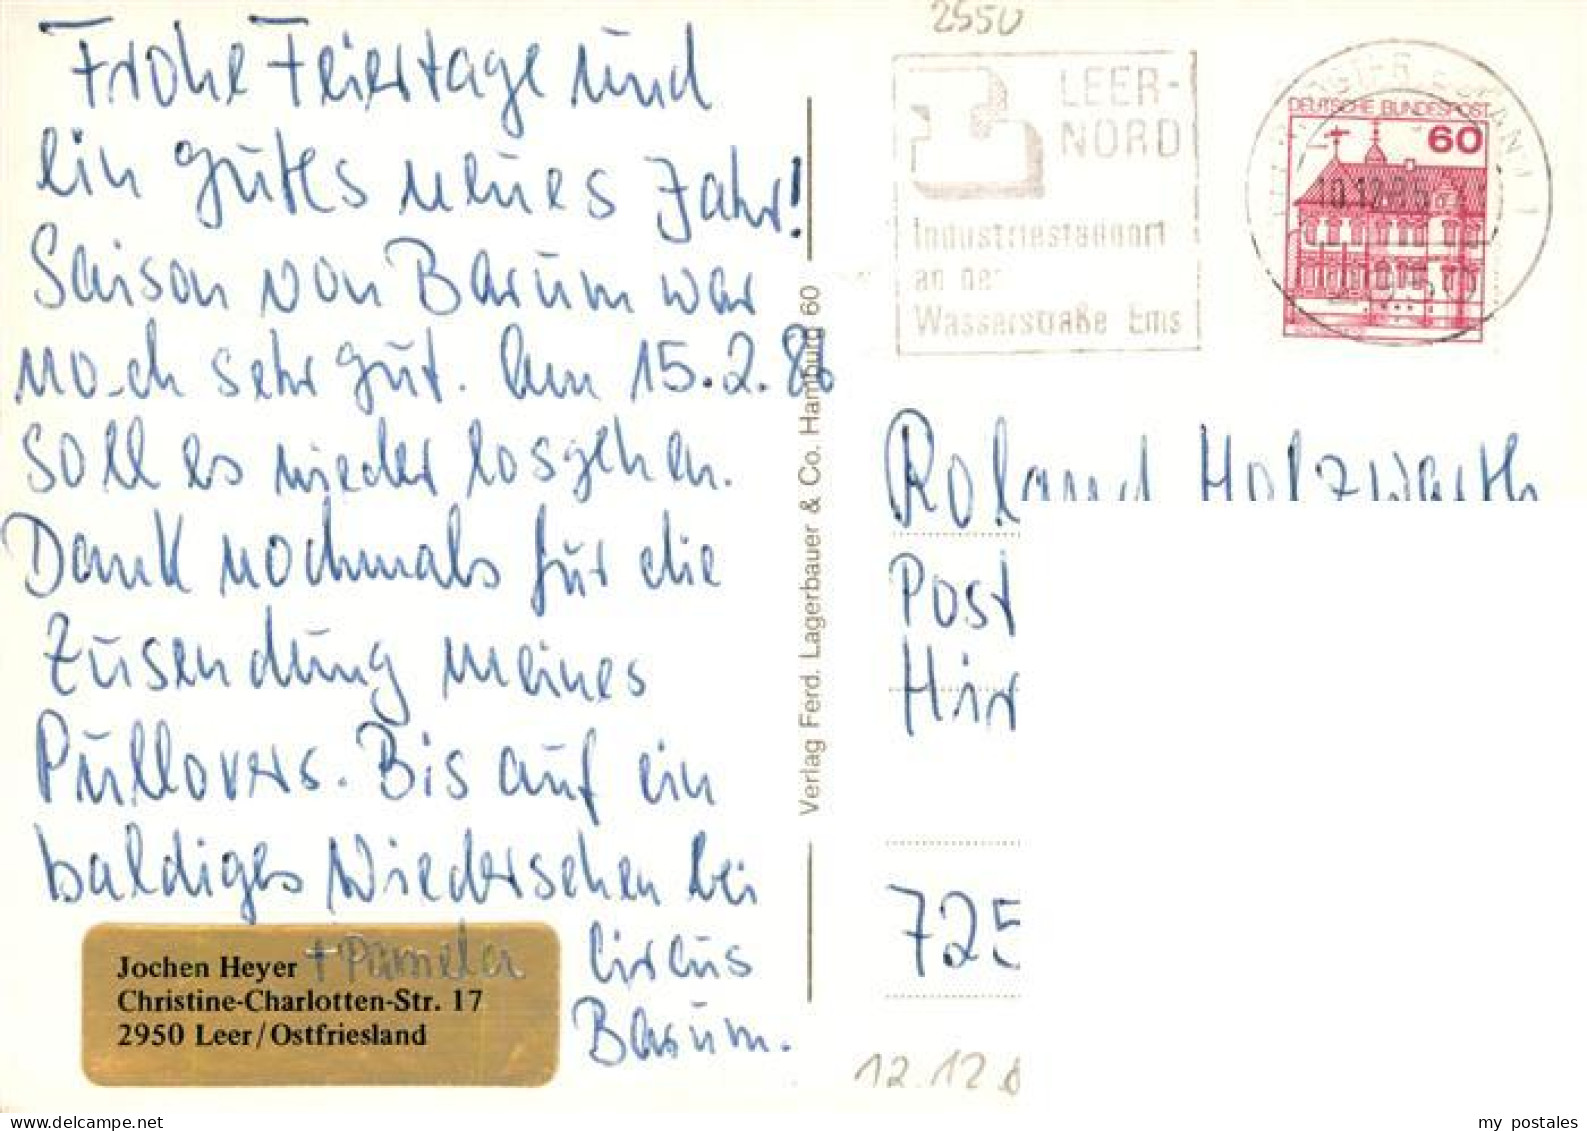 Frohe Feiertage und
ein gutes neues Jahr!
Saison von Barum war
noch sehr gut. Am 15.2.86
soll es wieder losgehen.
Dank nochmals für die
Zusendung meines
Pullovers. Bis auf ein
baldiges Wiedersehen bei
Circus
Barum.
+ Pamela
Jochen Heyer
Christine-Charlotten-Str. 17
2950 Leer/Ostfriesland
Verlag Ferd. Lagerbauer & Co. Hamburg 60
LEER-
NORD
Industriestandort
an der
Wasserstraße Ems
DEUTSCHE BUNDESPOST
60
10.12.85
Roland Holzwarth
Post
Hir
725
12.12.8
my postales